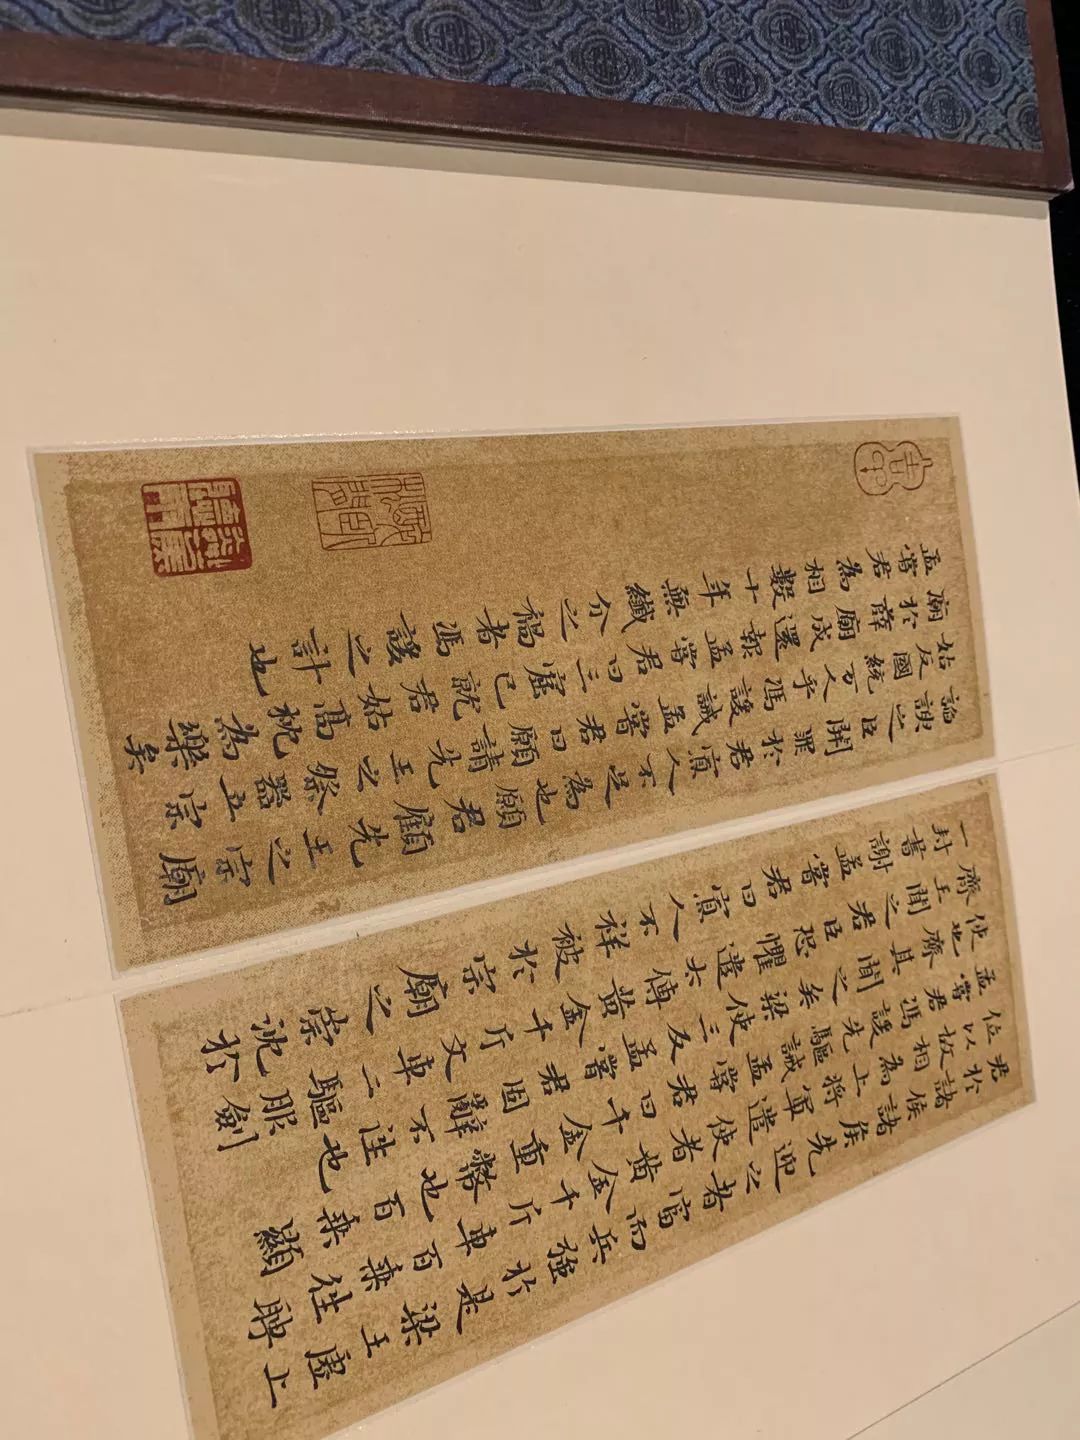 君於諸侯諸侯先迎之者富而兵強於是梁王虛上
位以故相為上將軍遣使者黃金千斤車百乘往聘
孟嘗君馮諼先驅誡孟嘗君曰千金重幣也百乘顯
使也齊其聞之矣梁使三反孟嘗君固辭不往也
齊王聞之君臣恐懼遣太傅黃金千斤文車二服劍
一封書謝孟嘗君曰寡人不祥被於宗廟之祟沈於
諂諛之臣開罪於君寡人不足為也願君顧先王之宗廟
姑反國統万人乎馮諼誡孟嘗君曰願請先王之祭器立宗
廟於薛廟成還報孟嘗君曰三窟已就君姑高枕為樂矣
孟嘗君為相數十年無纖介之禍者馮諼之計也